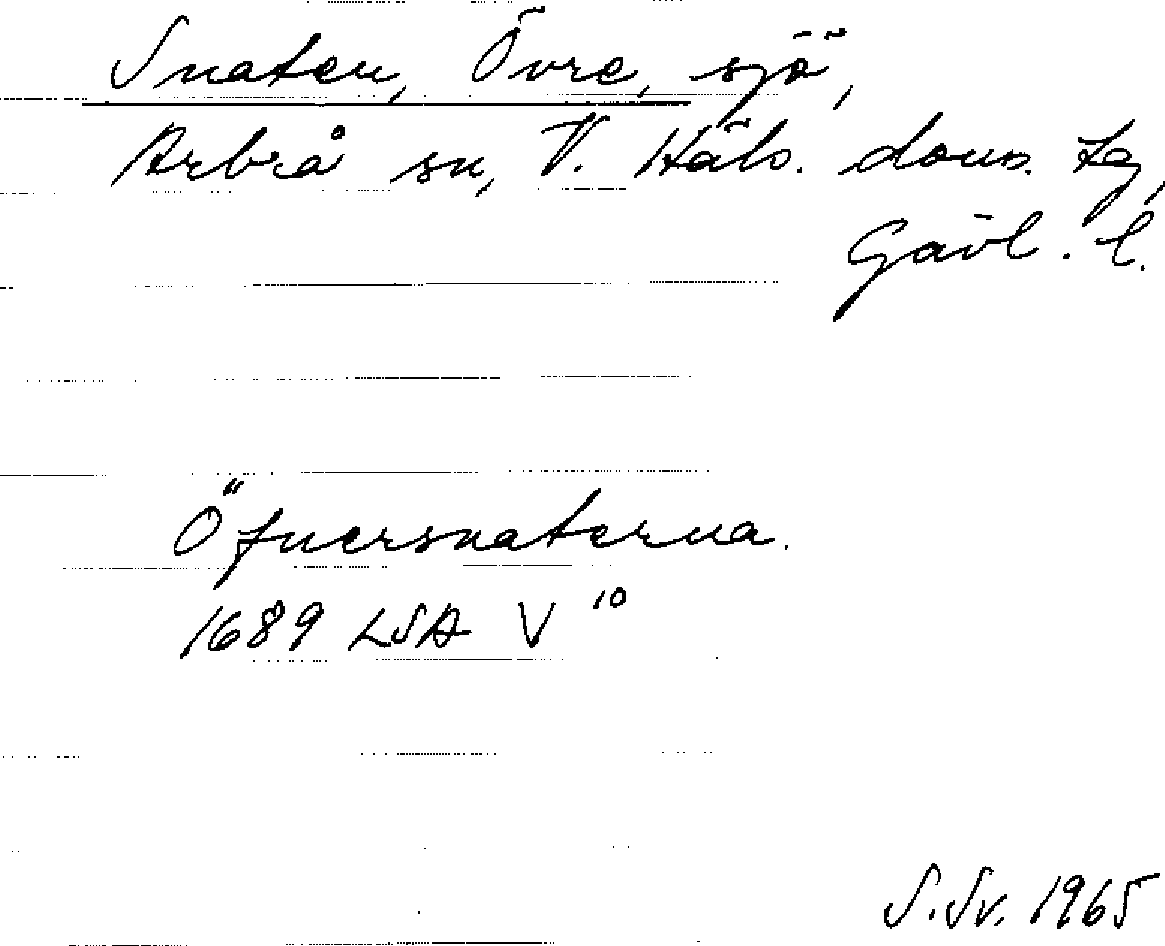 Snaten, Övre, sjö,
Arbrå sn, V. Häls. doms. tg,
Gävl. l.
Öfuersnaterna.
1689 LSA V 10
S.Sv. 1965